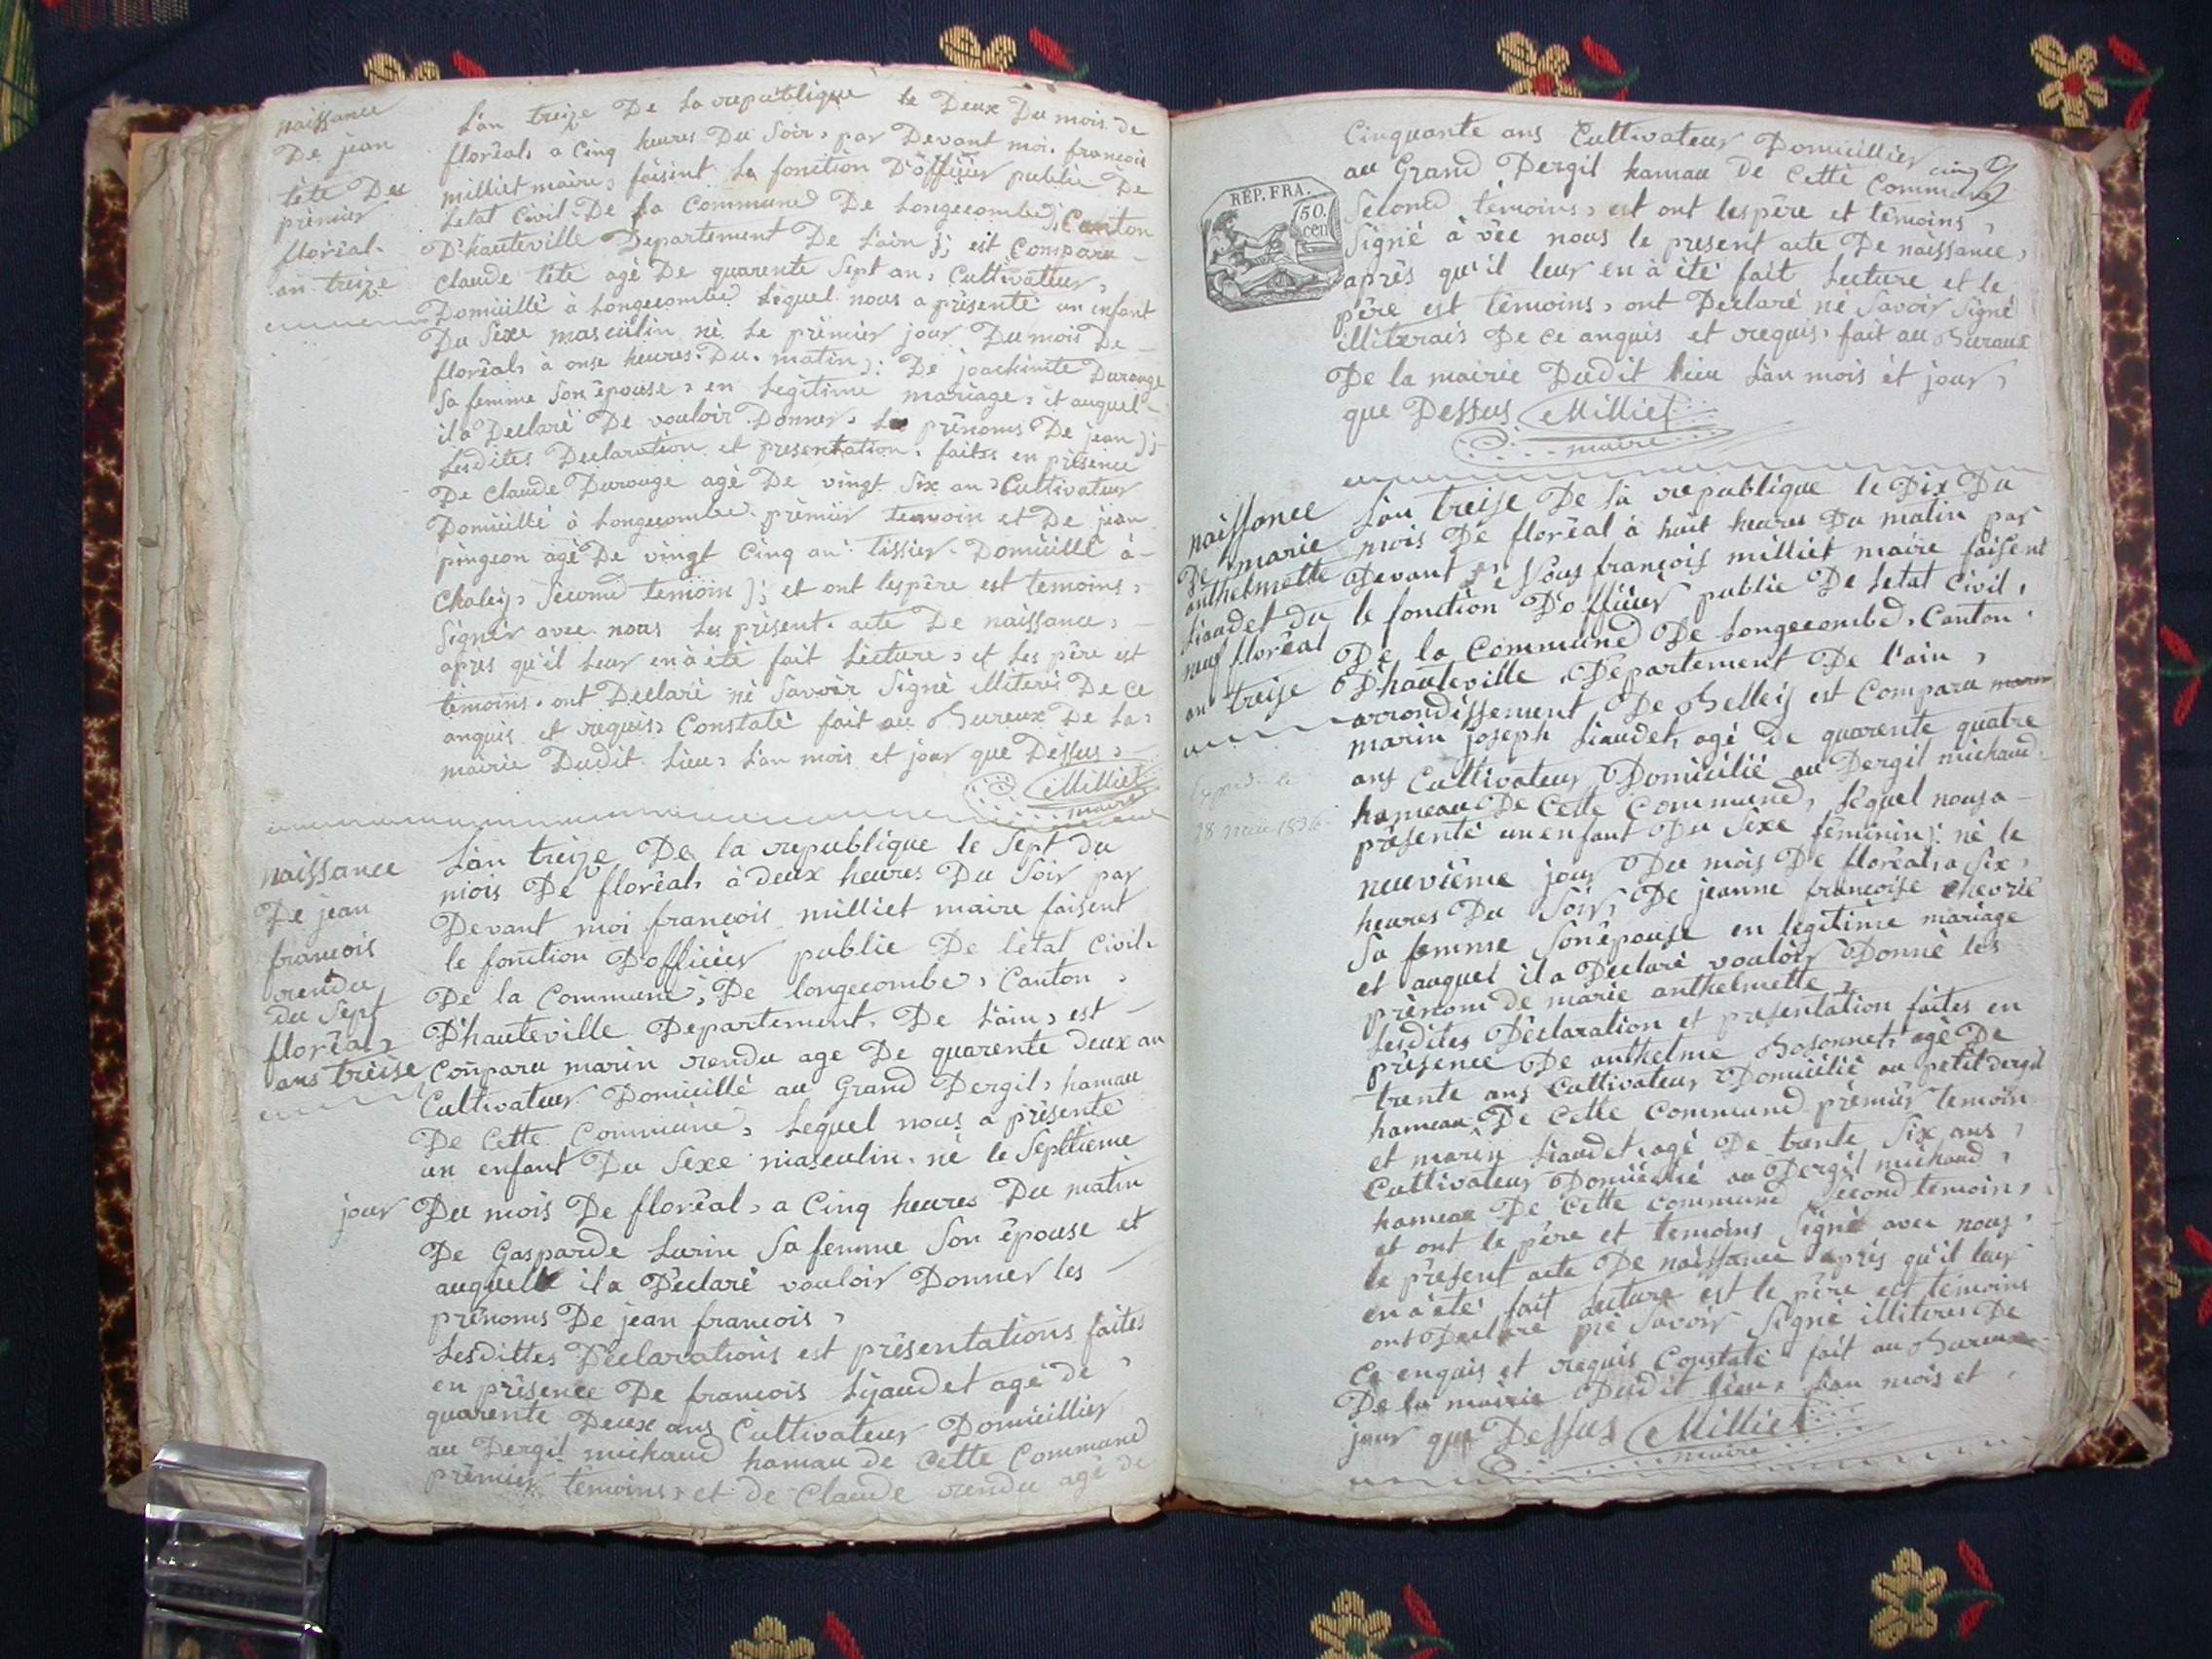 naissance
De jean
tête Du
prémiér
floréal.
an treize
L'an treize De La republique le Deux Du mois de
floréal, a Cinq heures Du Soir, par Devant moi. francois
milliet maire, faisint La fonction D'officier public De
Letat Civil De La Commune De Longecombe, Canton
D'hauteville Departement De L'ain ); est Comparu
Claude tête agé De quarente Sept an, Cultivatteur,
Domicillé à Longecombe Lequel nous a présenté un enfant
Du Sexe masculin né Le prémiér jour Du mois De
floréal, à onse heures. Du. matin ): De joachimte Durouge
Sa femme Son épouse, en Légitime mariage, et auquel
il a Declaré De vouloir Donner, Le prénoms De jean );
Lesdites Declaration et presentation. faites en présence
De Claude Durouge agé De vingt Six an, Cultivateur
Domicillé à Longecombe. prémiér temoin et De jean
pingeon agé De vingt Cinq an. tissier. Domicillé à
Chaley, Second temoin ); et ont lespère est temoins,
Signér avec nous Les présent. acte De naissance,
apres qu'il Leur en à été fait Lecture, et Les père est
témoins. ont Declaré né Savoir Signé illiteré De ce
anquis et requis, Constaté fait au Bureux De La,
mairie Dudit Lieu, L'an mois et jour que Dessus,
Milliet
maire
naissance
De jean
francois
rendu
du Sept
floréal,
ans treise
L'an treize De la republique le Sept du
mois De floréal, à deux heures Du Soir par
Devant moi francois milliet maire faisent
le fonction D'officier public De l'état Civil,
De la Commune, De longecombe, Canton,
D'hauteville Departement. De L'ain, est
Comparu marin rendu age De quarente deux an
Cultivateur Domicillé au Grand Dergil, hamau
De Cette Commune, Lequel nous a présenté
un enfant Du Sexe masculin. né le Septtieme
jour Du mois De floréal, a Cinq heures Du matin
De Gasparde Lurin Sa femme Son épouse et
auquell il a Déclaré vouloir Donner les
prénoms De jean francois,
Lesdittes Déclarations est présentations faites
en présence De francois Lyaudet agé de
quarente Deux ans Cultivateur Domicillier
au Dergil michaud hamau de Cette Commune
prémiér témoins, et de Claude rendu agé de
Cinquante ans Cultivateur Domicillier cinq
au Grand Dergil hamau De Cette Commune
REP. FRA.
50.
cen
Second témoins, est ont lespère et témoins,
Signé à vec nous le present acte De naissance,
après qu'il leur en à été fait Lecture et le
père est témoins, ont Declaré né Savoir Signé
illiterais De ce anquis et requis, fait au Buraux
De la mairie Dudit lieu L'an mois et jour,
que Dessus Milliet
maire
naissance
De marie
anthelmette
Liaudet du
neuf floréal
an treise
Expedi le
28 mai 1836
L'an treise De La republique le Dix Du
mois De floréal à huit heures Du matin par
Devant Nous francois milliet maire faisent
le fonction D'officier public De Letat Civil,
De la Commune De Longecombe, Canton
D'hauteville, Departement De l'ain,
arrondissement De Belley est Comparu marin
marin joseph Liaudet, agé de quarente quatre
ans Cultivateur, Domicilié au Dergil michaud
hameau De Cette Commune, Léquel nous a
présenté un enfant Du Sexe féminin ): né le
neuviéme jour Du mois De floréal, a Six,
heures Du Soir, De jeanne francoise Chevrié
Sa femme Son épouse en legitime mariage
et auquel il a Declaré vouloir Donné les
prénom de marie anthelmette,
Lesdites Déclaration et presentation faites en
présence De anthelme Bosonnet, agé De
trente ans Cultivateur Domicilié au petit dergil
hameau De Cette Commune prémiér temoin
et marin Liaudet, agé De trente Six ans,
Cultivateur Domicilié au Dergil michaud,
hameau De Cette commune Second temoin,
et ont le père et temoins Signé avec nous,
le présent acte De naissance après qu'il leur
en à été fait Lecture est le père est témoins
ont Declaré né Savoir Signé illiteres De
Ce enquis et requis Constaté fait au Bureux
De la mairie Dudit lieu, L'an mois et
jour que Dessus Milliet
maire